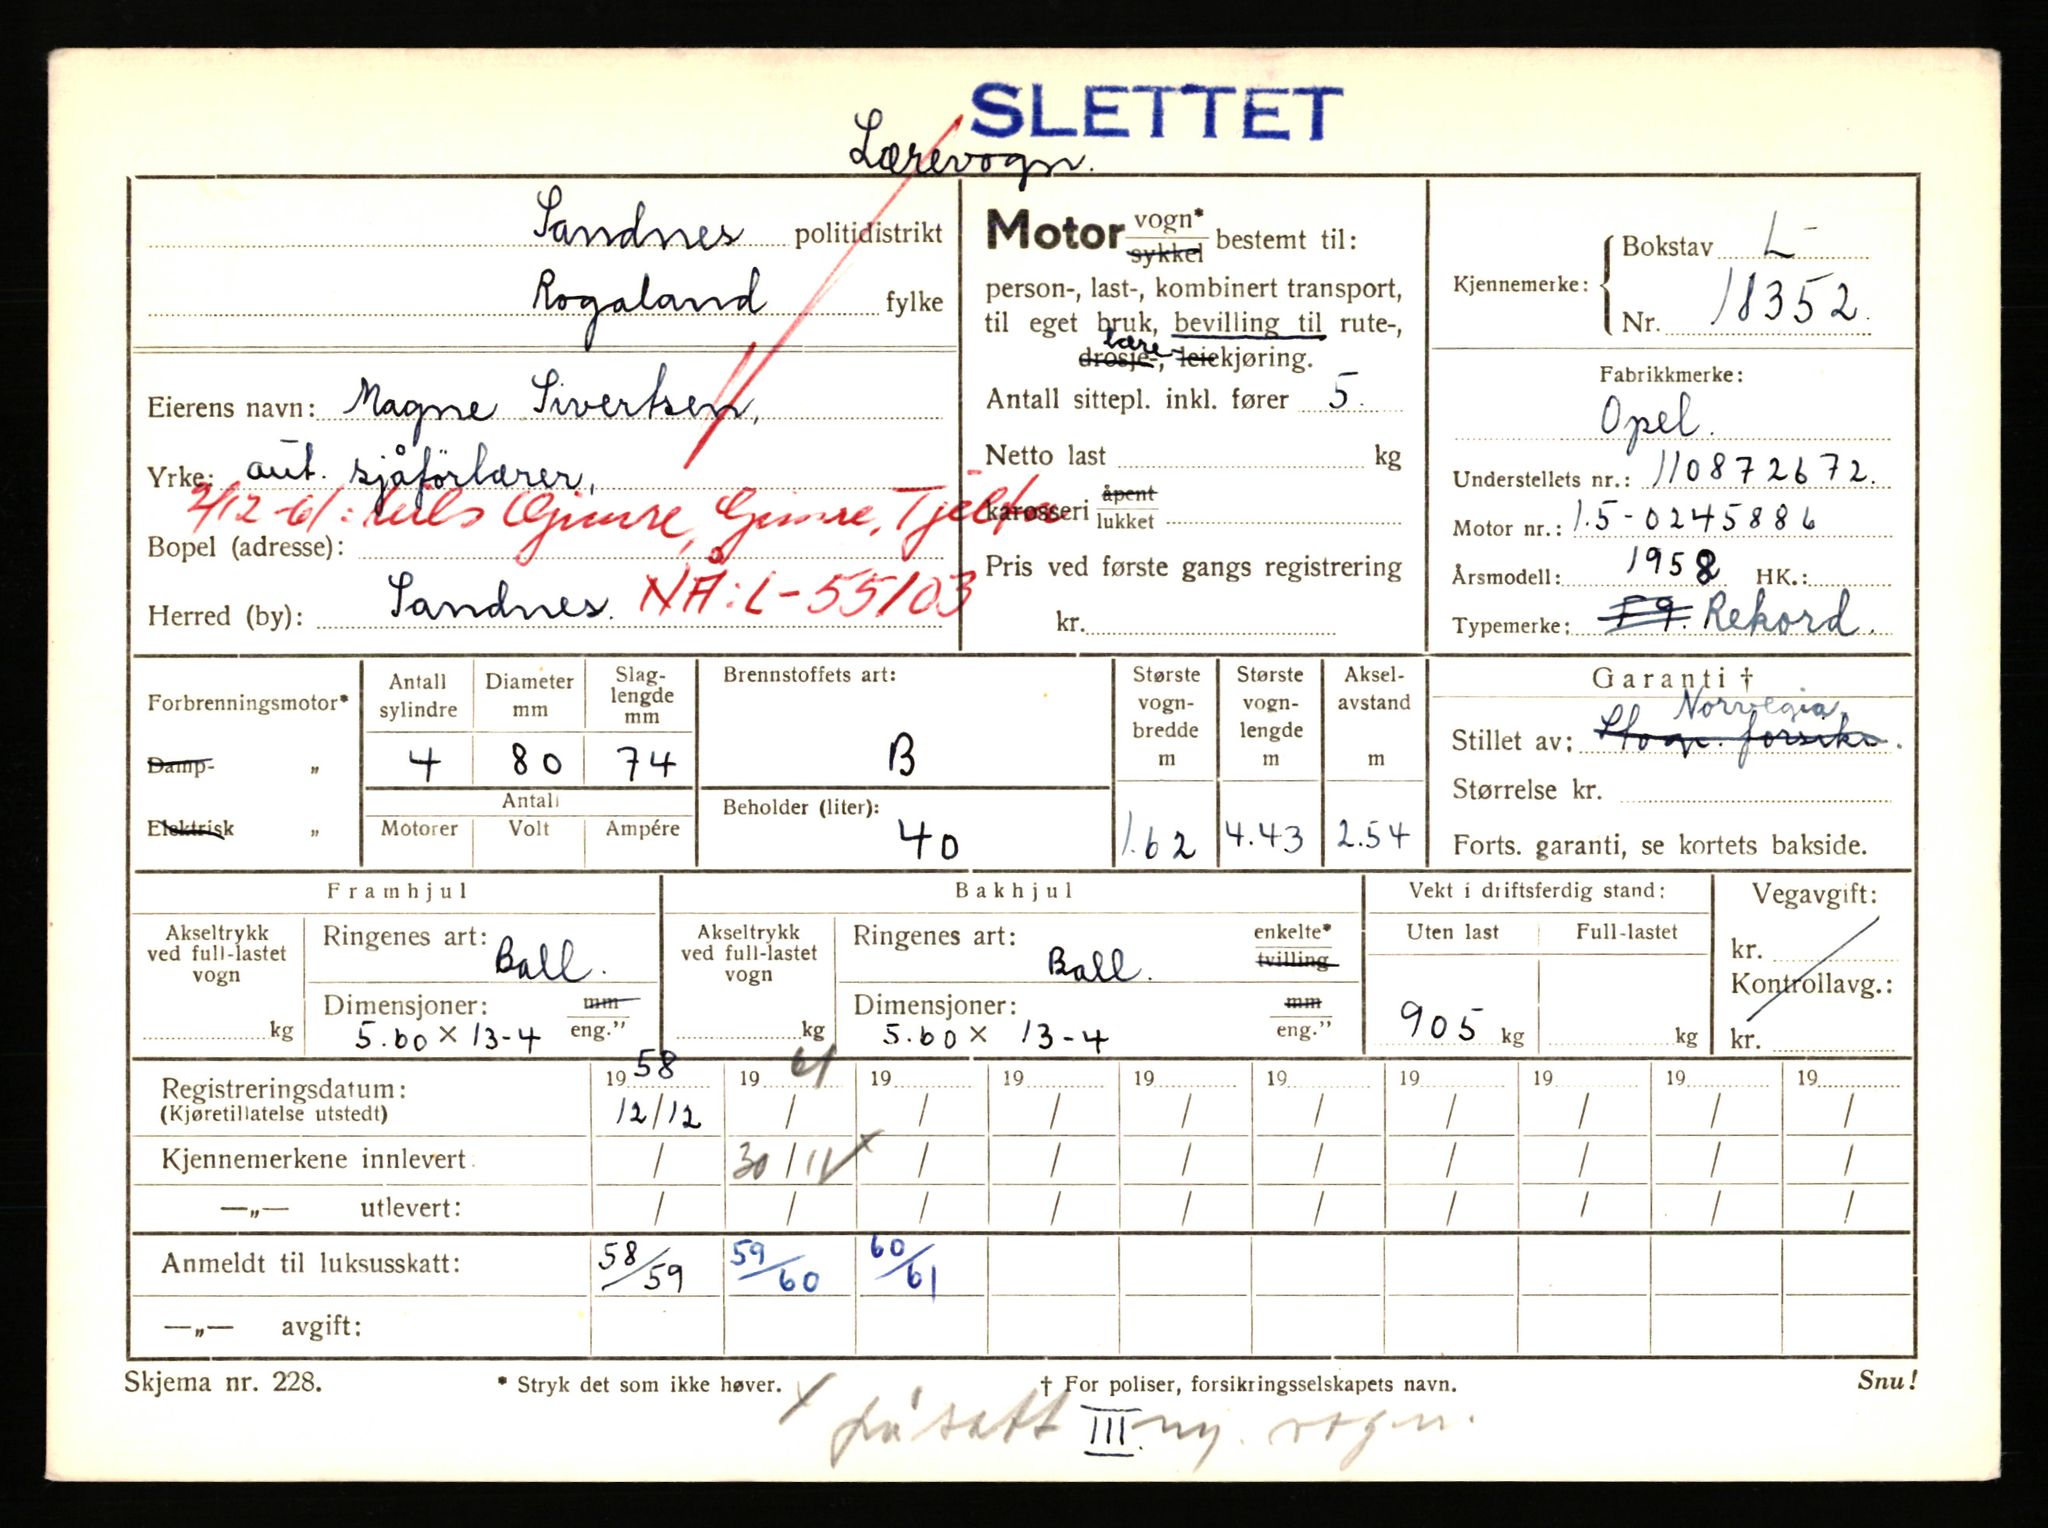 SLETTET
Lærevogn.
Sandnes politidistrikt
Rogaland fylke
Eierens navn: Magne Sivertsen,
Yrke: aut. sjåførlærer,
2/12-61: Nils Gjimre, Gimre, Tjelta
Bopel (adresse):
Herred (by): Sandnes. NÅ: L-55103
Motor vogn* sykkel bestemt til:
person-, last-, kombinert transport,
til eget bruk, bevilling til rute-,
lære-
drosje-, leiekjøring.
Antall sittepl. inkl. fører 5.
Netto last kg
karosseri åpent lukket
Pris ved første gangs registrering
kr.
Kjennemerke: Bokstav L-
Nr. 18352.
Fabrikkmerke:
Opel.
Understellets nr.: 110872672.
Motor nr.: 1.5-0245886
Årsmodell: 1958 HK.:
Typemerke: Rekord.
Forbrenningsmotor*
Damp- „
Elektrisk „
Antall sylindre
4
Diameter mm
80
Slag-lengde mm
74
Antall
Motorer Volt Ampére
Brennstoffets art:
B
Beholder (liter):
40
Største vogn-bredde m
1.62
Største vogn-lengde m
4.43
Aksel-avstand m
2.54
Garanti †
Norvegia.
Stillet av: forsikr.
Størrelse kr.
Forts. garanti, se kortets bakside.
Framhjul
Akseltrykk ved full-lastet vogn
kg
Ringenes art: Ball.
Dimensjoner: mm eng."
5.60 x 13-4
Bakhjul
Akseltrykk ved full-lastet vogn
kg
Ringenes art: Ball. enkelte* tvilling
Dimensjoner: mm eng."
5.60 x 13-4
Vekt i driftsferdig stand:
Uten last Full-lastet
905 kg kg
Vegavgift:
kr.
Kontrollavg.:
kr.
Registreringsdatum: 1958 1961 19 19 19 19 19 19 19 19
(Kjøretillatelse utstedt) 12/12 / / / / / / / / /
Kjennemerkene innlevert / 30/11 x / / / / / / / /
—„— utlevert: / / / / / / / / / /
Anmeldt til luksusskatt: 58/59 59/60 60/61
—„— avgift:
Skjema nr. 228. * Stryk det som ikke høver. † For poliser, forsikringsselskapets navn. Snu!
x påsatt III ny. vogn.